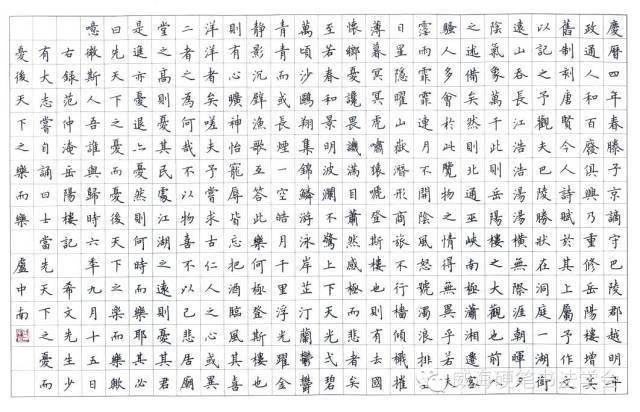 慶曆四年春滕子京謫守巴陵郡越明年
政通人和百廢俱興乃重修岳陽樓增其
舊制刻唐賢今人詩賦於其上屬予作文
以記之予觀夫巴陵勝狀在洞庭一湖銜
遠山吞長江浩浩湯湯橫無際涯朝暉夕
陰氣象萬千此則岳陽樓之大觀也前人
之述備矣然則北通巫峽南極瀟湘遷客
騷人多會於此覽物之情得無異乎若夫
霪雨霏霏連月不開陰風怒號濁浪排空
日星隱曜山嶽潛形商旅不行檣傾楫摧
薄暮冥冥虎嘯猿啼登斯樓也則有去國
懷鄉憂讒畏譏滿目蕭然感極而悲者矣
至若春和景明波瀾不驚上下天光一碧
萬頃沙鷗翔集錦鱗游泳岸芷汀蘭鬱鬱
青青而或長煙一空皓月千里浮光躍金
靜影沉璧漁歌互答此樂何極登斯樓也
則有心曠神怡寵辱皆忘把酒臨風其喜
洋洋者矣嗟夫予嘗求古仁人之心或異
二者之為何哉不以物喜不以己悲居廟
堂之高則憂其民處江湖之遠則憂其君
是進亦憂退亦憂然則何時而樂耶其必
曰先天下之憂而憂後天下之樂而樂歟
噫微斯人吾誰與歸時六年九月十五日
右錄范仲淹岳陽樓記 希文先生少
有大志嘗自誦曰士當先天下之憂而
憂後天下之樂而樂 盧中南
威海硬笔书法学会